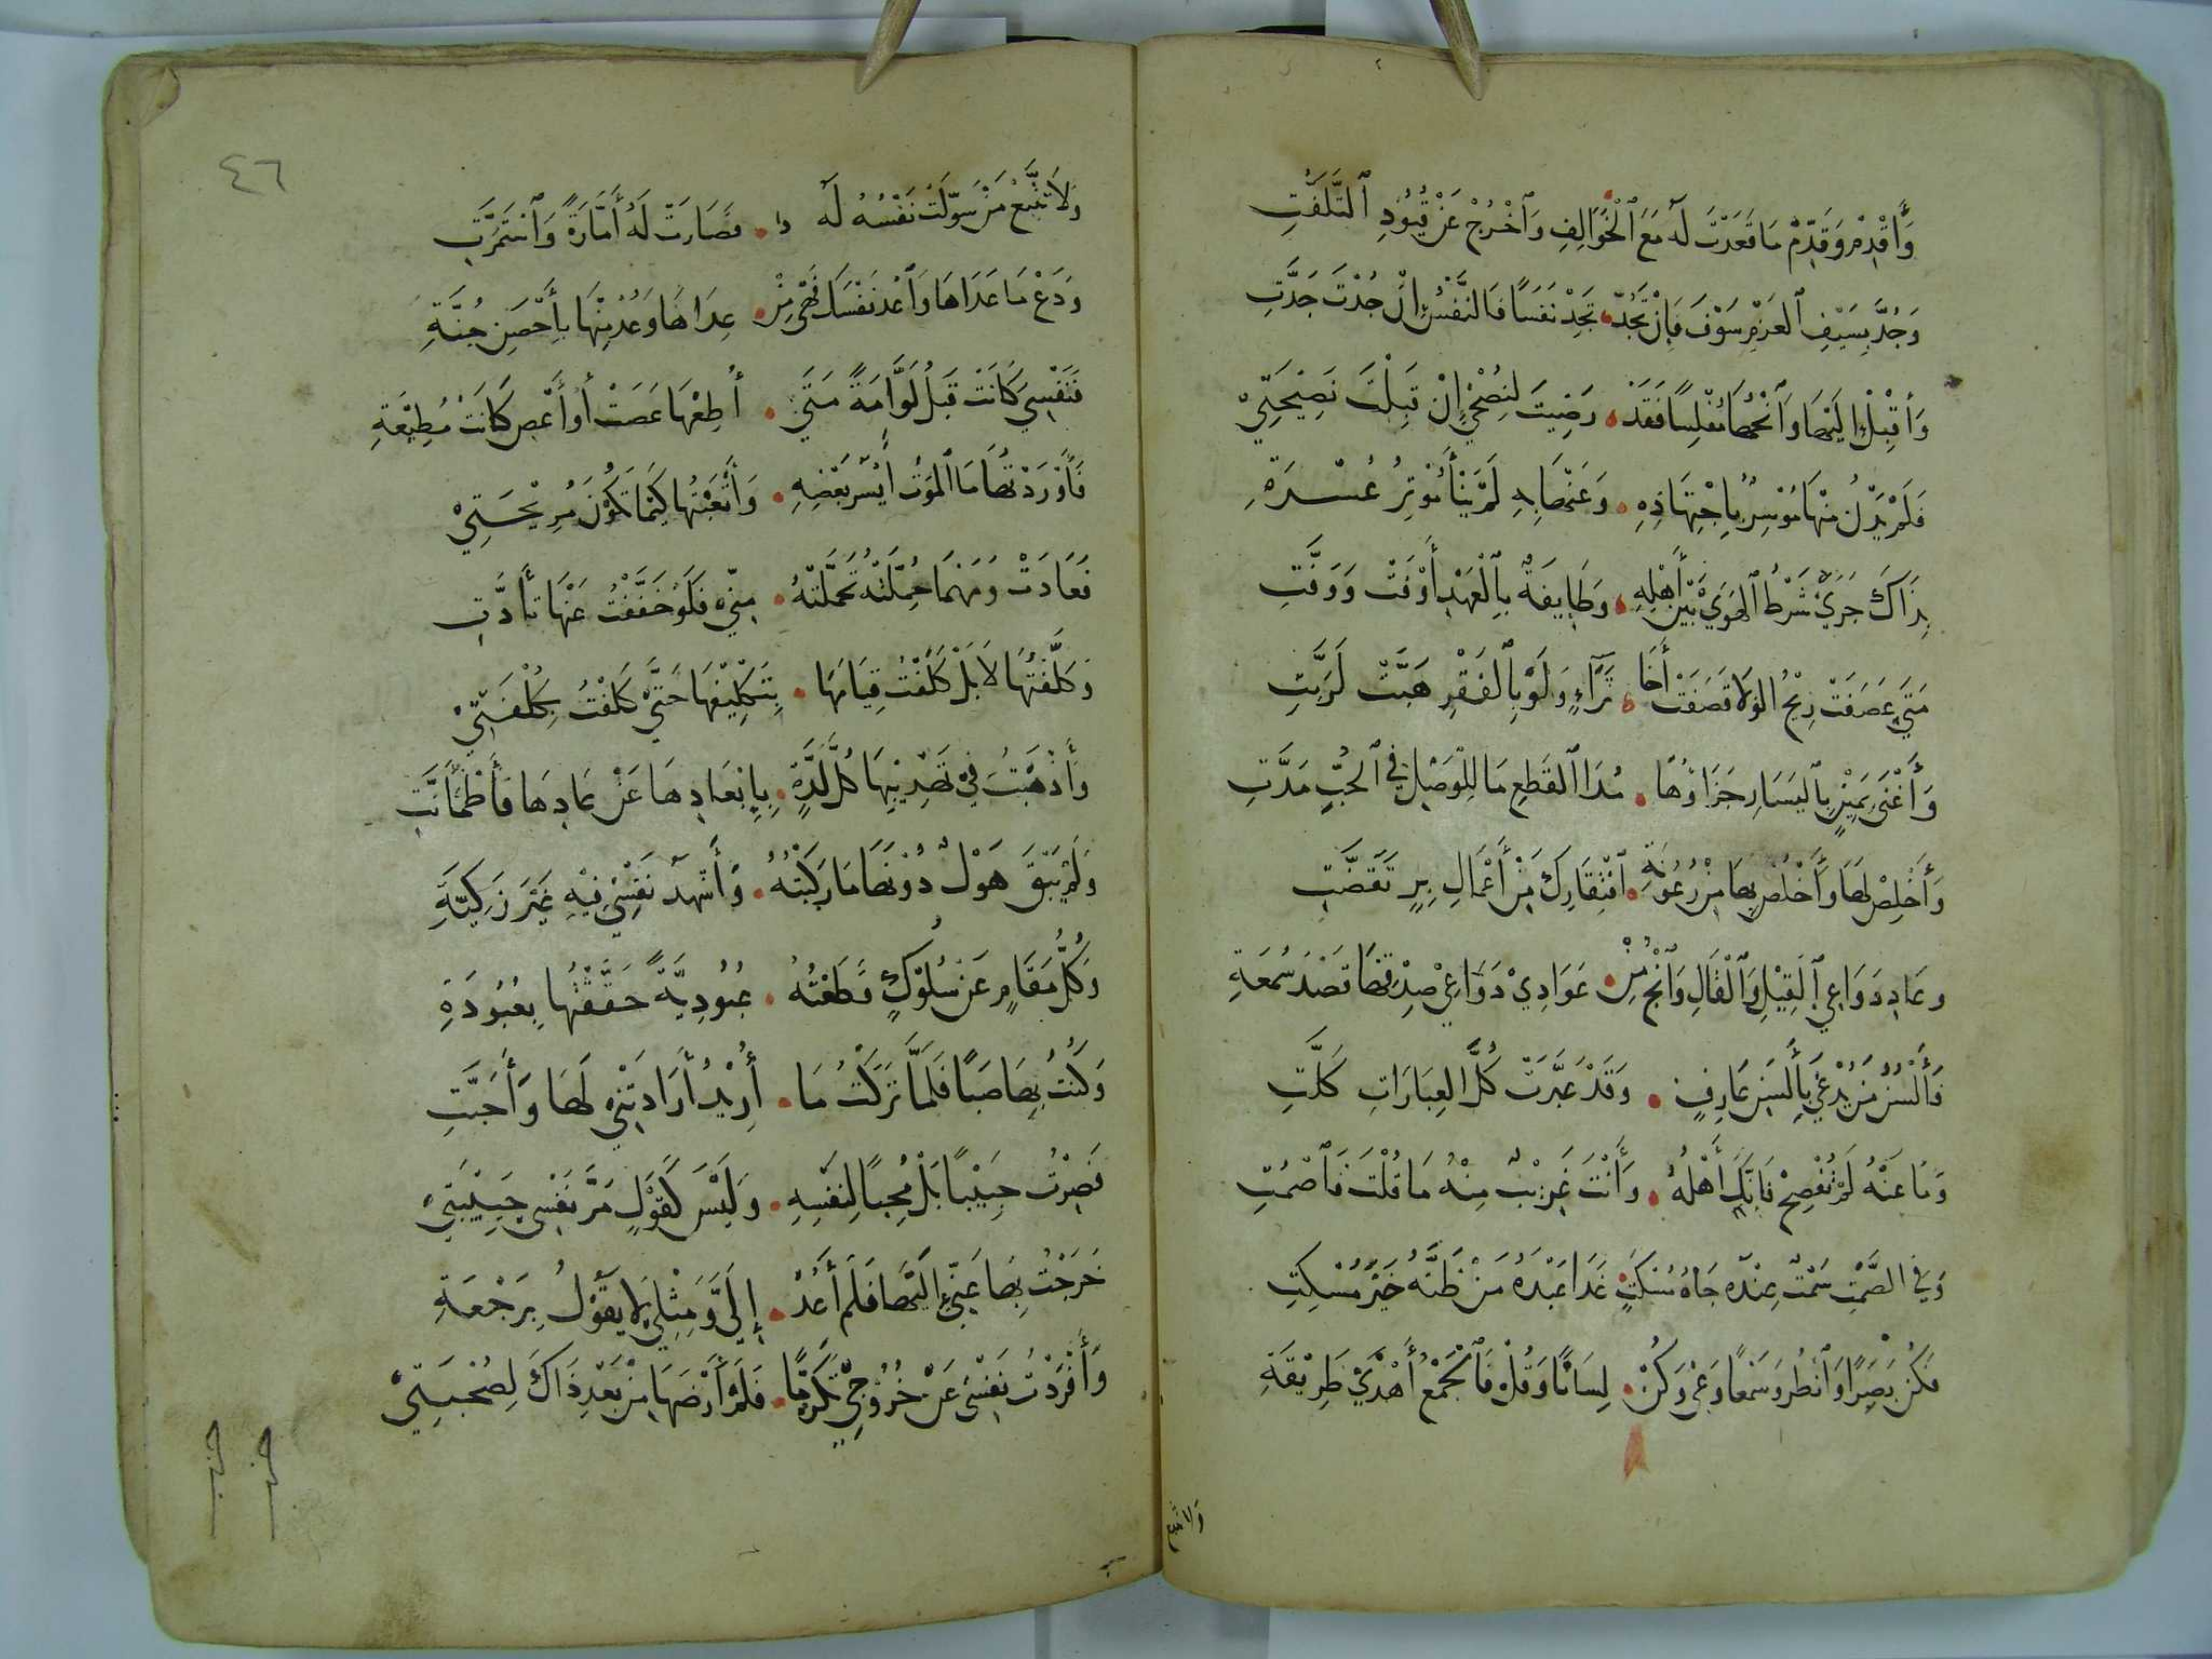 وَأَقْدِمْ وَقَدِّمْ مَا قَعَدْتَ لَهُ مَعَ ٱلْخَوَالِفِ وَٱخْرُجْ عَنْ قُيُودِ ٱلتَّلَفُّتِ
وَجُدَّ بِسَيْفِ ٱلعَزْمِ سَوْفَ فَإِنْ تَجُدْ تَجِدْ نَفَسًا فَالنَّفْسُ إِنْ جُدْتَ جَدَّتِ
وَأَقْبِلْ إِلَيْهَا وَٱنْحُهَا مُفْلِسًا فَقَدْ رَضِيتَ لِنُصْحِيْ إِنْ قَبِلْتَ نَصِيْحَتِيْ
فَلَمْ يَدْنُ مِنْهَا مُوْسِرٌ بِاِجْتِهَادِهِ وَعَنْهَا بِهِ لَمْ يَنْأَ مُؤْثِرُ عُسْرَةِ
بِذَاكَ جَرَىْ شَرْطُ ٱلهَوَىْ بَيْنَ أَهْلِهِ وَطَايِفَةٌ بِٱلْعَهْدِ أَوْفَتْ وَوَفَّتِ
مَتَىْ عَصَفَتْ رِيْحُ الوَلَا قَصَفَتْ أَخَا ثَرَآءٍ وَلَوْ بِٱلفَقْرِ هَبَّتْ لَرَبَّتِ
وَأَغْنَىْ يَمِيْنٍ بِٱليَسَارِ جَزَاؤُهَا مُدَا ٱلقَطْعِ مَا لِلْوَصْلِ فِي ٱلحُبِّ مَدَّتِ
وَأَخْلِصْ لَهَا وَٱخْلُصْ بِهَا مِنْ رُعُوْنَةِ ٱفْتِقَارِكَ مِنْ أَعْمَالِ بِرٍ تَقَضَّتِ
وعَادِ دَوَاعِي ٱلقِيْلِ وَٱلْقَالِ وَٱنْجُ مِنْ عَوَادِيْ دَوَاعِيْ صِدْقُهَا قَصْدُ سُمْعَةِ
فَأَلْسُنُ مَنْ يُدْعَى بِأَلْسَنِ عَارِفٍ وَقَدْ عُبِّرَتْ كُلُّ العِبَارَاتِ كَلَّتِ
وَمَا عَنْهُ لَمْ تُفْصِحْ فَإِنَّكَ أَهْلُهُ وَأَنْتَ غَرِيْبٌ مِنْهُ مَا قُلْتَ فَٱصْمُتِ
وَفِي الصَّمْتِ سَمْتٌ عِنْدَهُ جَاهُ مُسْكَتٍ غَدَا عَبْدَهُ مَنْ ظَنَّهُ خَيْرَ مُسْكِتِ
فَكُنْ بَصِيْرًا وَٱنْظُرْ وَسَمْعًا وَعِيْ وَكُنْ لِسَانًا وَقُلْ فَٱلْجَمْعُ أَهْدَىْ طَرِيْقَةِ
ولَا تتبع
٤٦
وَلَا تَتَّبِعْ مَنْ سَوَّلَتْ نَفْسُهُ لَهُ فَصَارَتْ لَهُ أَمَّارَةً وَٱسْتَمَرَّتِ
وَدَعْ مَا عَدَاهَا وَٱعْدُ نَفْسَكَ فَهْيَ مِنْ عِدَاهَا وَعُذْ مِنْهَا بِأَحْصَنِ جُنَّةِ
فَنَفْسِيَ كَانَتْ قَبْلُ لَوَّامَةً مَتَىْ أُطِعْهَا عَصَتْ أَوْ أَعْصِ كَانَتْ مُطِيْعَةِ
فَأَوْرَدْتُهَا مَا ٱلمَوْتُ أَيْسَرُ بَعْضِهِ وَأَتْعَبْتُهَا كَيْمَا تَكُوْنَ مُرِيْحَتِيْ
فَعَادَتْ وَمَهْمَا حُمِّلَتْهُ تَحَمَّلَتْهُ مِنِّيْ فَلَوْ خَفَّفْتُ عَنْهَا تَأَدَّتِ
وَكَلَّفْتُهَا لَا بَلْ كَلَفْتُ قِيَامَهَا بِتَكْلِيْفِهَا حَتَّىْ كَلِفْتُ بِكُلْفَتِيْ
وَأَذْهَبْتُ فِيْ تَهْذِيْبِهَا كُلَّ لَذَّةٍ بِإِبْعَادِهَا عَنْ عَادِهَا فَٱطْمَأَنَّتِ
وَلَمْ يَبْقَ هَوْلٌ دُوْنَهَا مَا رَكِبْتُهُ وَأَشْهَدُ نَفْسِيْ فِيْهِ غَيْرَ زَكِيَّةِ
وَكُلُّ مَقَامٍ عَنْ سُلُوْكٍ قَطَعْتُهُ عُبُودِيَّةً حَقَّقْتُهَا بِعُبُودَةِ
وَكُنْتُ بِهَا صَبًا فَلَمَّا تَرَكْتُ مَا أُرِيْدُ أَرَادَتْنِيْ لَهَا وَأَحَبَّتِ
فَصِرْتُ حَبِيْبًا بَلْ مُحِبًا لِنَفْسِهِ وَلَيْسَ كَقَوْلٍ مَرَّ نَفْسِي حَبِيْبَتِيْ
خَرَجْتُ بِهَا عَنِّيْ إِلَيْهَا فَلَمْ أَعُدْ إِلَىَّ وَمِثْلِيْ لَا يَقُوْلُ بِرَجْعَةِ
وَأَفْرَدْتُ نَفْسِيْ عَنْ خُرُوْجِيْ تَكَرُّمًا فَلَمْ أَرْضَهَا مِنْ بَعْدِ ذَاكَ لِصُحْبَتِيْ